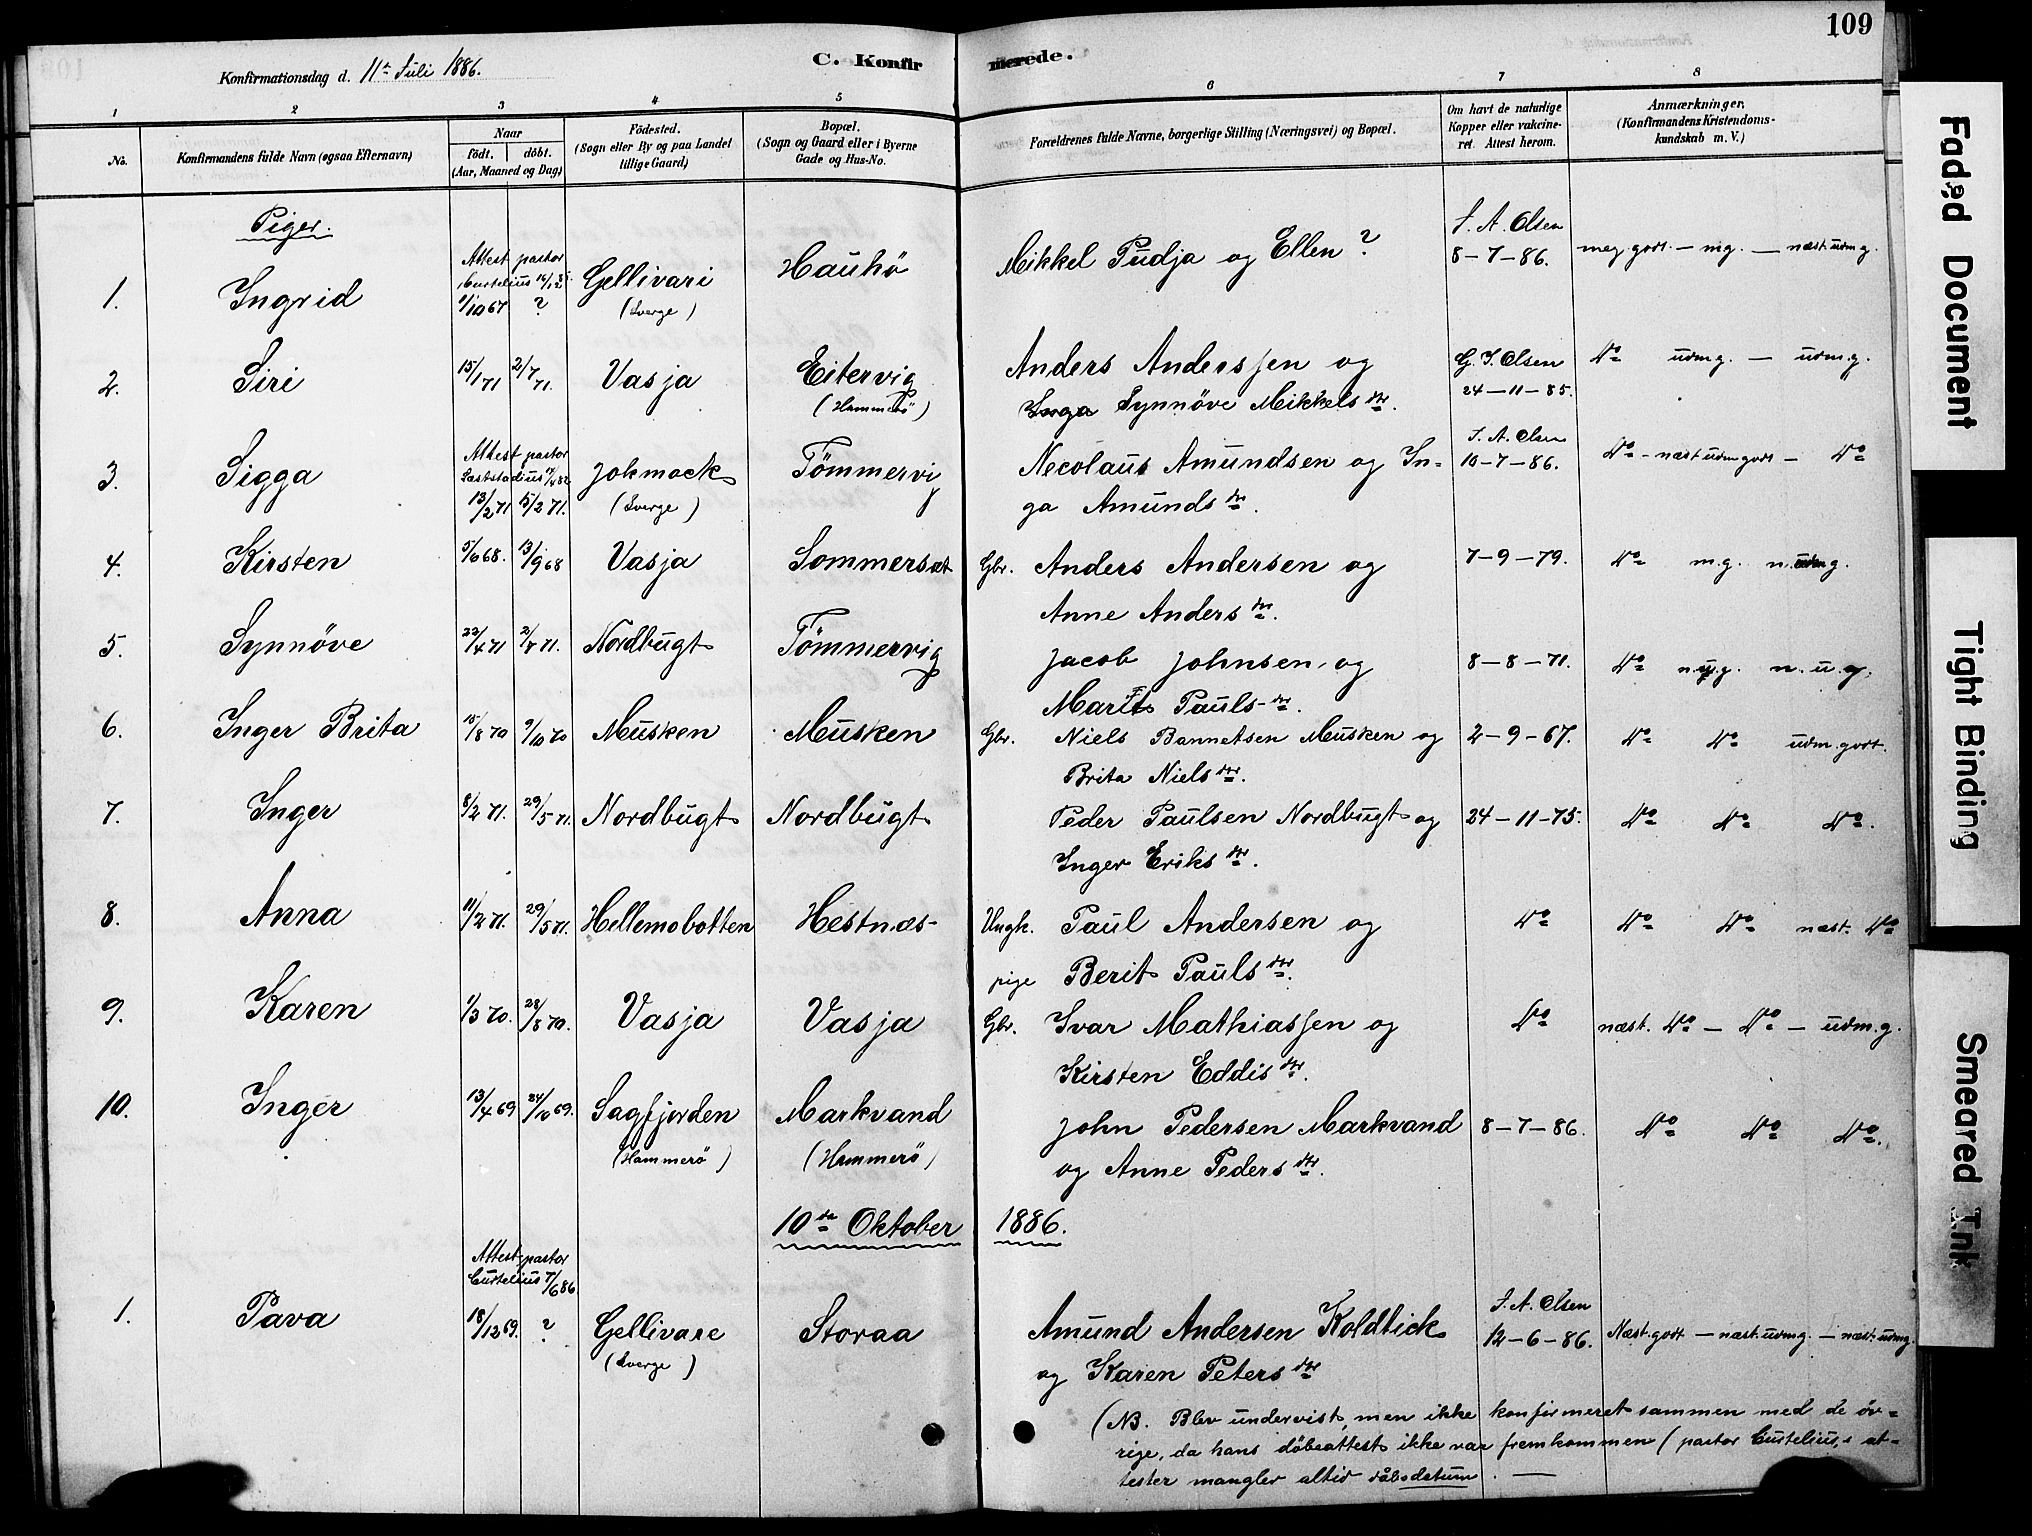 109
Konfirmationsdag d. 11te Juli 1886.
C. Konfirmerede.
1 2 3 4 5 6 7 8
No.
Konfirmandens fulde Navn (ogsaa Efternavn)
Naar
født. | döbt.
(Aar, Maaned og Dag)
Födested.
(Sogn eller By og paa Landet
tillige Gaard)
Bopæl.
(Sogn og Gaard eller i Byerne
Gade og Hus-No.
Forældrenes fulde Navne, borgerlige Stilling (Næringsvei) og Bopæl.
Om havt de naturlige
Kopper eller vakcine-
ret. Attest herom.
Anmærkninger,
(Konfirmandens Kristendoms-
kundskab m. V.)
Piger.
Attest pastor
1. Ingrid 1/10 67 ? Gellivari (Sverge) Hauhö Mikkel Pudja og Ellen ? J. A. Olsen 8-7-86. meg. godt. — mg. — næst udm g.
2. Siri 15/1 71 2/7 71. Vasja Eitervig (Hammerö) Anders Anderssen og G. J. Olsen 24-11-85. Do udm.g. — udm.g.
Inga Synnöve Mikkels dtr.
Attest pastor
3. Sigga 13/2 71 15/2 71. Jokmock (Sverge) Tömmervig Necolaus Amundsen og In- J. A. Olsen 10-7-86. Do - næst udm godt - Do
ga Amunds dtr.
4. Kirsten 5/6 68. 13/9 68 Vasja Sommersæt Gbr. Anders Andersen og 7-9-79. Do m.g. n. udm g.
Anne Anders dtr.
5. Synnöve 22/4 71 2/7 71. Nordbugt Tömmervig Jacob Johnsen og 8-8-71. Do n.u.g. n.u.g.
Marit Pauls dtr.
6. Inger Brita 15/8 70 9/10 70 Musken Musken Gbr. Niels Bannetsen Musken og 2-9-67. Do Do udm. godt.
Brita Niels dtr.
7. Inger 8/2 71. 29/5 71. Nordbugt Nordbugt Peder Paulsen Nordbugt og 24-11-75. Do Do Do.
Inger Eriks dtr.
8. Anna 11/2 71. 29/5 71. Hellemobotten Hestnæs Ungk. Paul Andersen og Do Do Do næst. Do
pige Berit Pauls dtr.
9. Karen 1/3 70. 28/8 70. Vasja Vasja Gbr. Ivar Mathiassen og Do næst. Do — Do — udm.g.
Kirsten Eddis dtr.
10. Inger 13/4 69 24/10 69. Sagfjorden (Hammerö) Markvand (Hammerö) John Pedersen Markvand 8-7-86. Do Do Do.
og Anne Peders dtr.
10de Oktober 1886.
Attest pastor
Curtelius 7/6 86
1. Pava 18/12 69. ? Gellivare (Sverge) Storaa Amund Andersen Koldtick J. A. Olsen 12-6-86. Næst. godt — næst. udm g. — næst. udm g.
og Karen Peters dtr
(NB. Blev undervist, men ikke konfirmeret sammen med de öv-
rige, da hans döbeattest ikke var fremkommen (pastor Curtelius,s at-
tester mangler altid dåbsdatum. —
Faded Document
Tight Binding
Smeared Ink